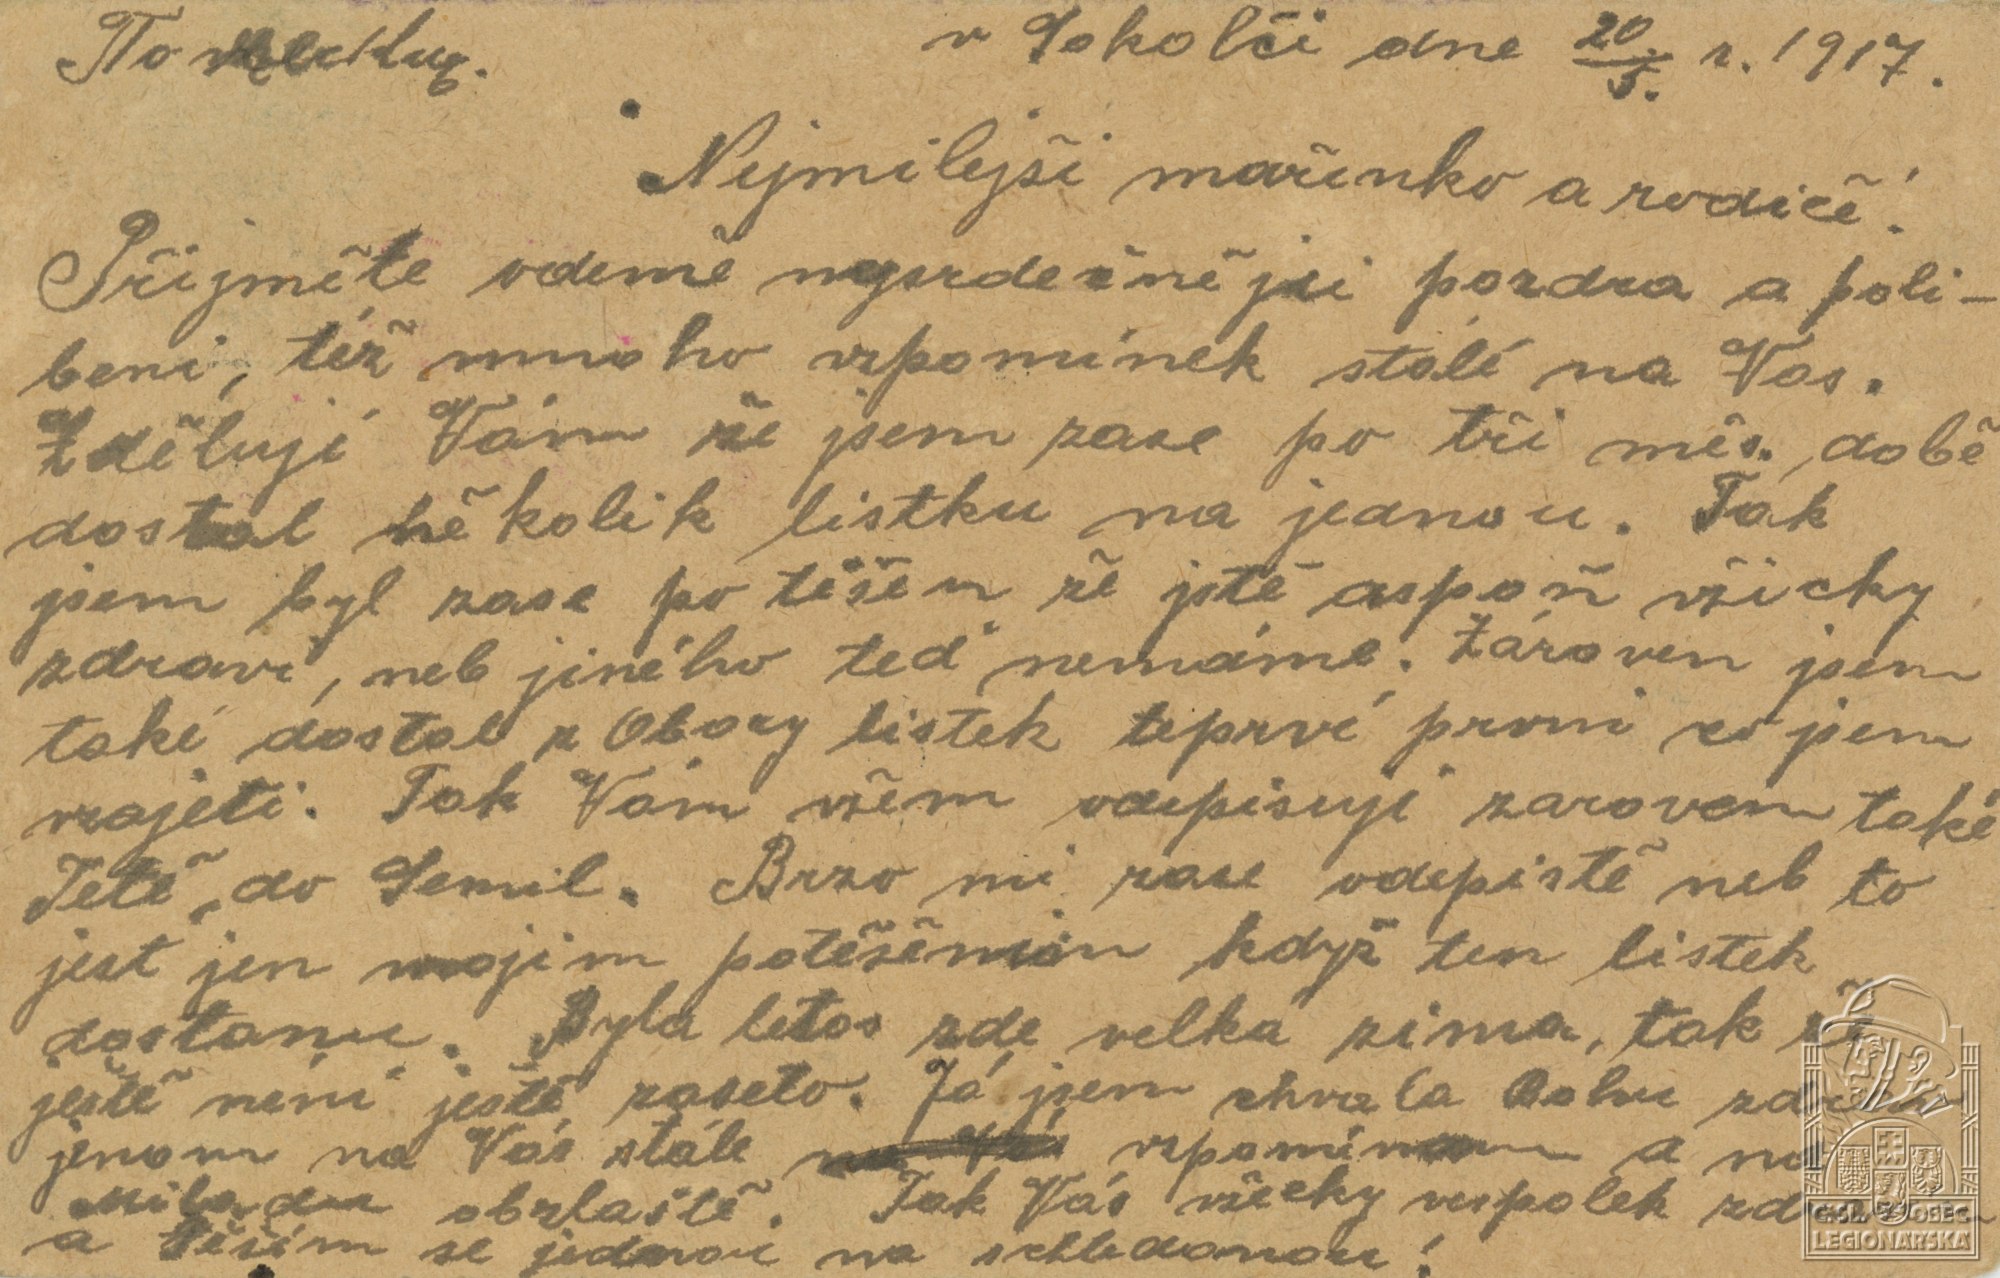 v Sokolči dne 20/5. r. 1917.
Nejmilejši mařinko a rodičě!
Přijměte odemě nejsrdečnějsi pozdra a poli-
beni, též mnoho vzpomínek stálé na Vás.
Zdělují Vám že jsem zase po tři měs. době
dostal několik listku na jednou. Tak
jsem byl zase po těšen že jstě aspoň všicky
zdravi, neb jiného teď nemáme. Zároven jsem
také dostal z Obory listek teprvé prvni co jsem
vzajeti. Tak Vám všem odepisuji zaroven také
Tetě do Semil. Brzo mi zase odepistě neb to
jest jen mojim potěšěnim když ten listek
dostanu. Byla letos zde velka zima, tak že
ještě neni ještě zaseto. Já jsem chvala Bohu
jenom na Vás stále vzpominam a na
Miladu obzlaště. Tak Vás všecky vespolek
a těším se jednou na schledanou!
ČSL. OBEC
LEGIONÁŘSKÁ